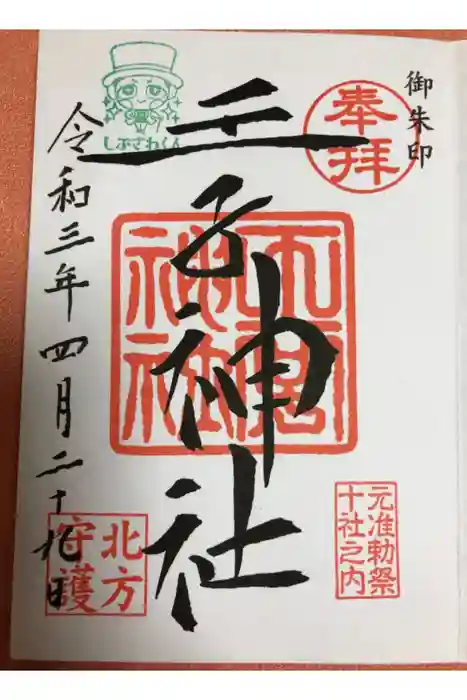 御朱印
奉拝
王子神社
元准勅祭
十社之内
しぶさわくん
令和三年四月二十九日
北方
守護